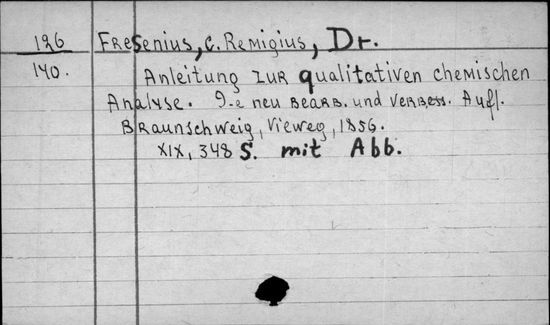 126 Fresenius, C. Remigius, Dr.
140. Anleitung zur qualitativen chemischen
Analyse. 9-e neu bearb. und verbess. Aufl.
Braunschweig, Vieweg, 1856.
XIX, 348 S. mit Abb.